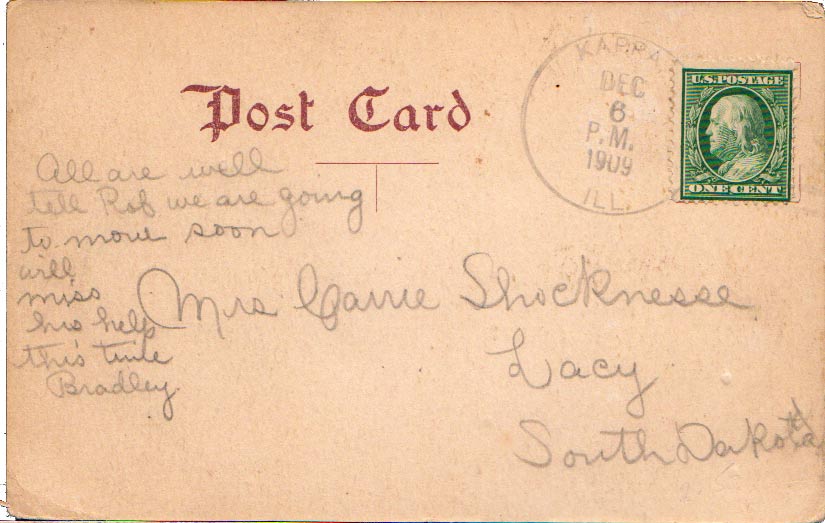 Post Card
KAPPA
DEC
6
P.M.
1909
ILL.
U.S. POSTAGE
ONE CENT
All are well
tell Rob we are going
to move soon
will
miss
his help
this time
Bradley
Mrs Carrie Shocknesse
Lacy
South Dakota